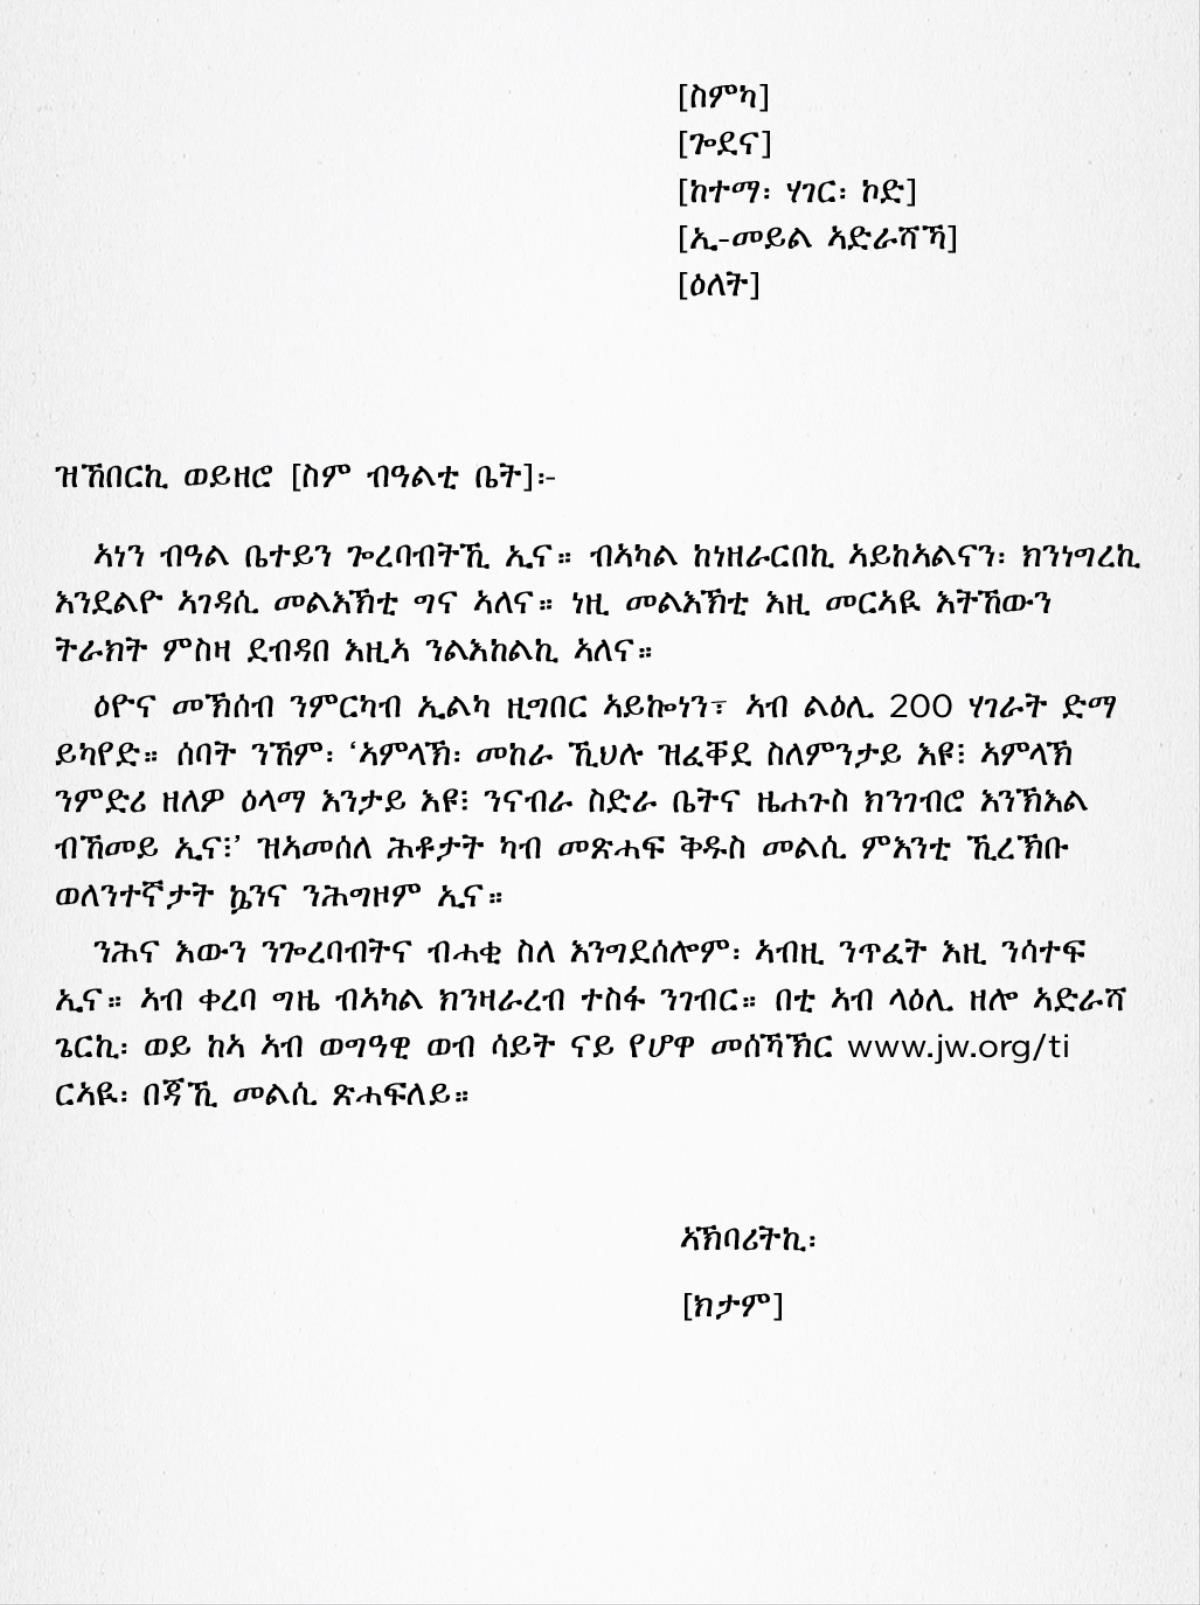 [ስምካ]
[ጐደና]
[ከተማ፡ ሃገር፡ ኮድ]
[ኢ-መይል ኣድራሻኻ]
[ዕለት]
ዝኸበርኪ ወይዘሮ [ስም ብዓልቲ ቤት]፦
ኣነን ብዓል ቤተይን ጐረባብትኺ ኢና። ብኣካል ከነዘራርበኪ ኣይከኣልናን፡ ክንነግረኪ
እንደልዮ ኣገዳሲ መልእኽቲ ግና ኣለና። ነዚ መልእኽቲ እዚ መርኣዪ እትኸውን
ትራክት ምስዛ ደብዳበ እዚኣ ንልእከልኪ ኣለና።
ዕዮና መኽሰብ ንምርካብ ኢልካ ዚግበር ኣይኰነን፣ ኣብ ልዕሊ 200 ሃገራት ድማ
ይካየድ። ሰባት ንኸም፡ ‘ኣምላኽ፡ መከራ ኺህሉ ዝፈቐደ ስለምንታይ እዩ፧ ኣምላኽ
ንምድሪ ዘለዎ ዕላማ እንታይ እዩ፧ ንናብራ ስድራ ቤትና ዜሐጕስ ክንገብሮ እንኽእል
ብኸመይ ኢና፧’ ዝኣመሰለ ሕቶታት ካብ መጽሓፍ ቅዱስ መልሲ ምእንቲ ኺረኽቡ
ወለንተኛታት ኴንና ንሕግዞም ኢና።
ንሕና እውን ንጐረባብትና ብሓቂ ስለ እንግደሰሎም፡ ኣብዚ ንጥፈት እዚ ንሳተፍ
ኢና። ኣብ ቀረባ ግዜ ብኣካል ክንዛራረብ ተስፋ ንገብር። በቲ ኣብ ላዕሊ ዘሎ ኣድራሻ
ጌርኪ፡ ወይ ከኣ ኣብ ወግዓዊ ወብ ሳይት ናይ የሆዋ መሰኻኽር www.jw.org/ti
ርኣዪ፡ በጃኺ መልሲ ጽሓፍለይ።
ኣኽባሪትኪ፡
[ክታም]